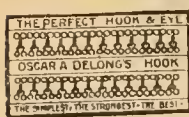 THE PERFECT HOOK & EYE
OSCAR A DELONG'S HOOK
THE SIMPLEST, THE STRONGEST, THE BEST